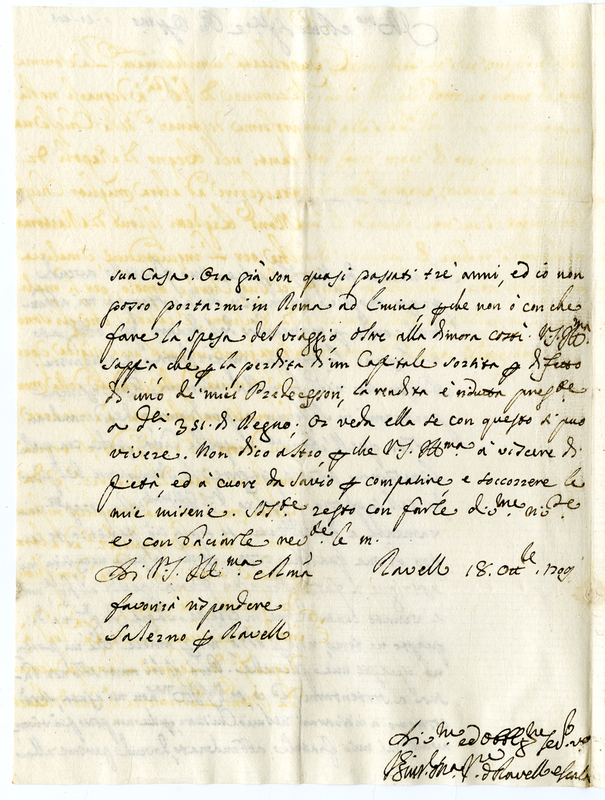 sua Casa. Ora già son quasi passati tre anni, ed io non
posso portarmi in Roma ad limina, p che non ò con che
fare la spesa del viaggio, oltre alla dimora costì. V.S. Illma
sappia che p la perdita d'un Capitale sortita p difetto
di uno de' miei Predecessori, la rendita è ridotta
a dti 351. di Regno; Or veda ella se con questo si può
vivere. Non dico altro, p che V.S. Illma à viscere di
pietà, ed à cuore da Savio p compatire, e soccorrere le
mie miserie. resto con farle
e con baciarle le m.
Di V.S. Illma e Rma Ravello 18. Ott.
favorirà rispondere
Salerno p Ravello
V. di Ravello e Scala